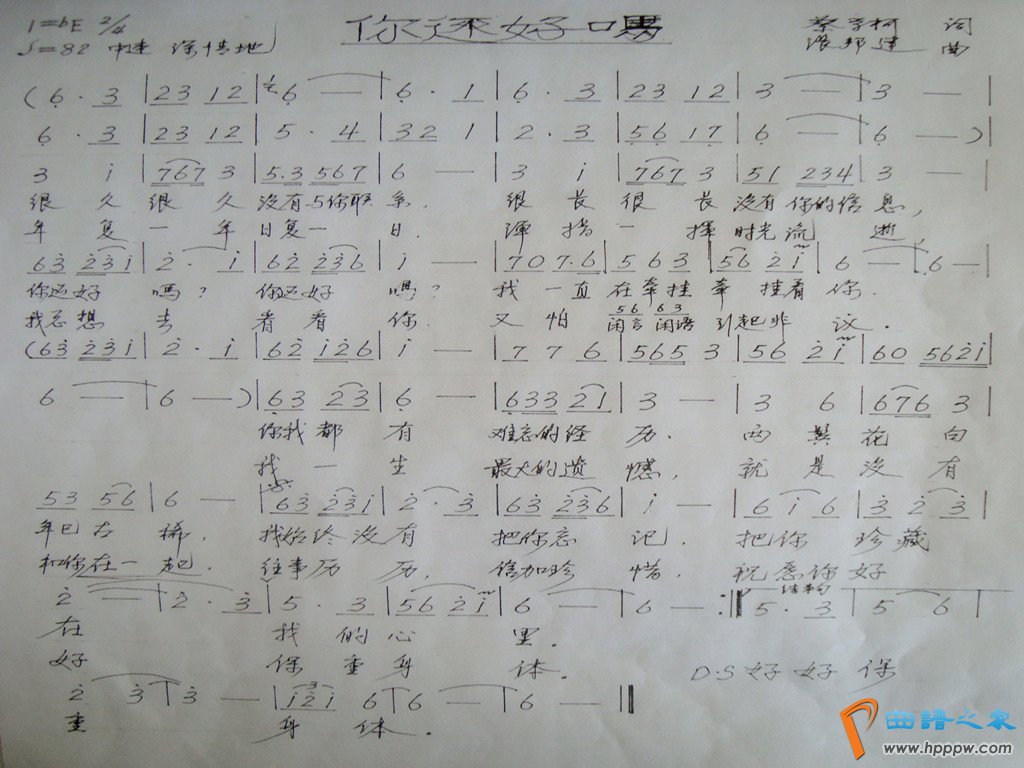 你还好吗
1=bE 2/4
词
♩=82 中速 深情地
曲
(6·3 | 23 12 | 6 — | 6·1 | 6·3 | 23 12 | 3 — | 3 — |
6·3 | 23 12 | 5·4 | 32 1 | 2·3 | 56 17 | 6 — | 6 —) |
3 i | 767 3 | 5.3 567 | 6 — | 3 i | 767 3 | 51 234 | 3 — |
很久很久没有与你联系, 很长很长没有你的信息,
年复一年日复一日. 弹指一挥时光流逝.
63 231 | 2·i | 62 236 | i — | 707·6 | 563 | 56 2i | 6 — | 6 —
你还好吗? 你还好吗? 我一直在牵挂牵挂着你.
我忘想去看看你. 又怕闲言闲语引起非议.
(63 231 | 2·i | 62 i26 | i — | 7 7 6 | 565 3 | 56 2i | 60 562i |
6 — | 6 —) | 63 23 | 6 — | 633 21 | 3 — | 3 6 | 676 3 |
你我都有难忘的经历. 两鬓花白
我一生最大的遗憾, 就是没有
53 56 | 6 — | 63 23i | 2·3 | 63 236 | i — | 6 i 6 | 3 2 3 |
年已古稀. 我始终没有把你忘记. 把你珍藏
和你在一起. 往事历历, 倍加珍惜. 祝愿你好
结束句
2 — | 2·3 | 5·3 | 56 2i | 6 — | 6 — :‖ 5·3 | 5 6 |
在我的心里.
好保重身体. D.S 好好保
2 3 | 3 — | i2i 6 | 6 — | 6 — ‖
重身体.
曲谱之家
www.hpppw.com